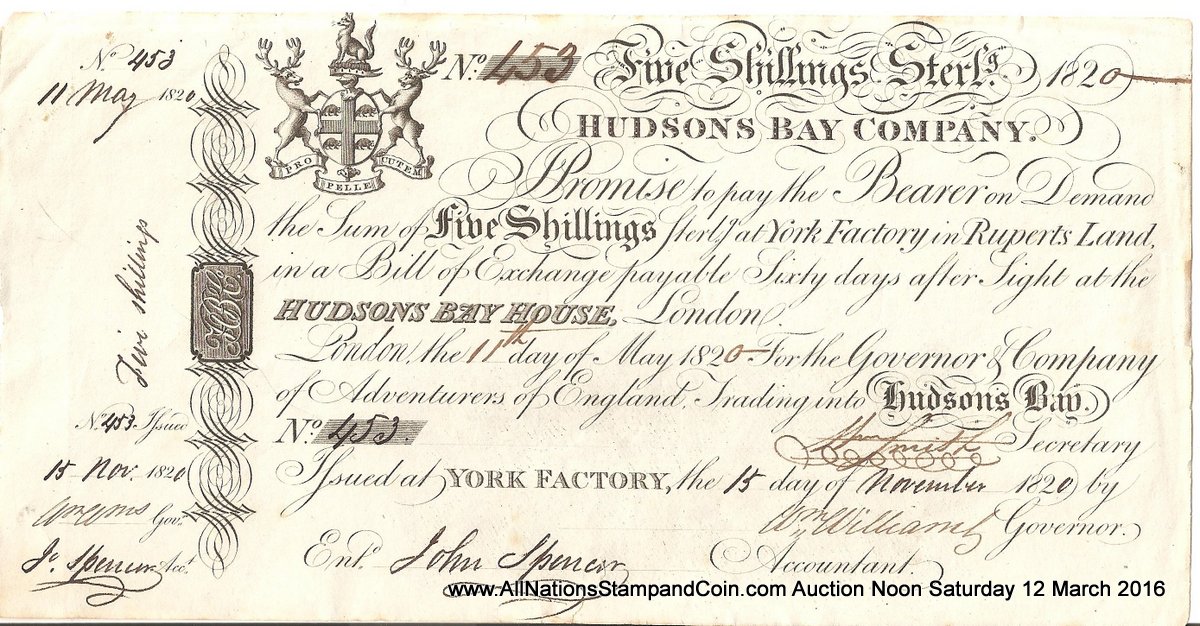 No. 453
11 May 1820
Five shillings
No. 453 Issued
15 Nov. 1820
Wm Wms Gov.
Jo. Spencer Acct.
HBC
PRO PELLE CUTEM
No. 453 Five Shillings Sterlg. 1820
HUDSONS BAY COMPANY.
I Promise to pay the Bearer on Demand
the Sum of Five Shillings Sterlg. at York Factory in Ruperts Land,
in a Bill of Exchange payable Sixty days after Sight at the
HUDSONS BAY HOUSE, London.
London, the 11th day of May 1820 For the Governor & Company
of Adventurers of England, Trading into Hudsons Bay.
No. 453.
Wm Smith Secretary
Issued at YORK FACTORY, the 15 day of November 1820 by
Wm Williams Governor.
Entd. John Spencer Accountant.
www.AllNationsStampandCoin.com Auction Noon Saturday 12 March 2016